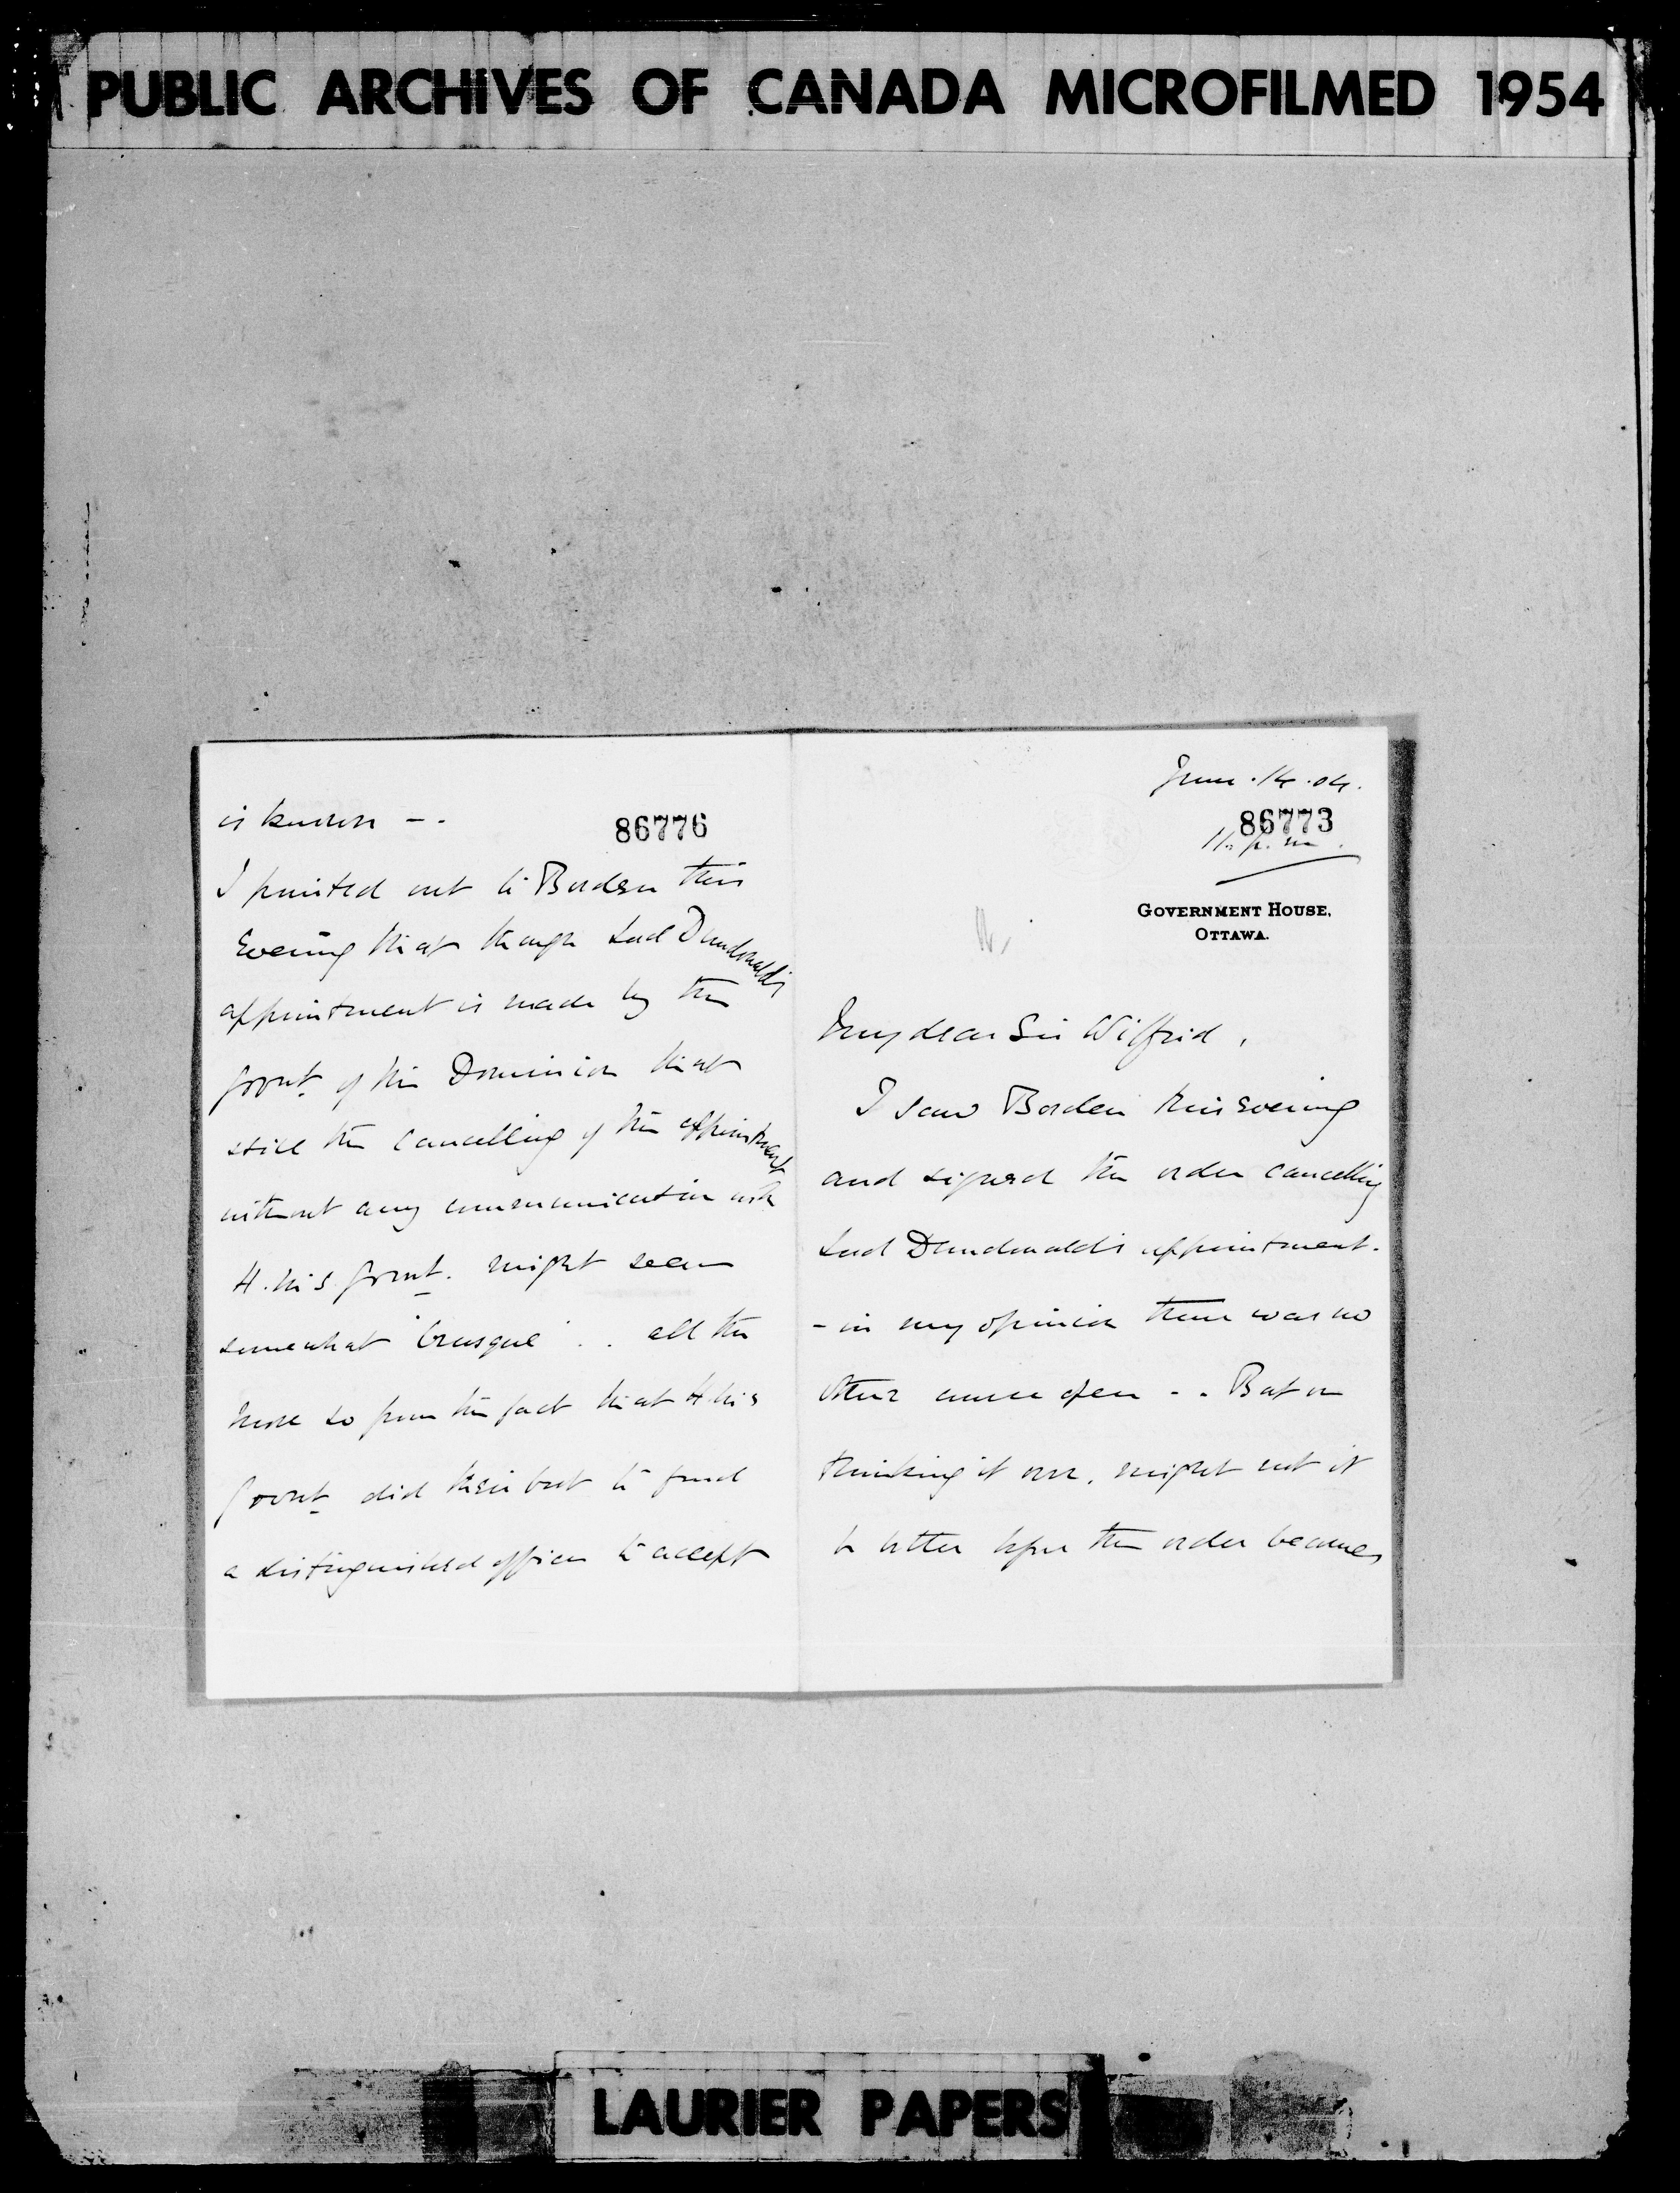 PUBLIC ARCHIVES OF CANADA MICROFILMED 1954
is known - .
86776
I pointed out to Borden this
Evening that though Lord Dundonald's
appointment is made by the
Govnt. of the Dominion that
still the cancelling of the appointment
without any communication with
H. M's Govnt. might seem
somewhat 'brusque' . . all the
more so from the fact that H. M's
Govnt did their best to find
a distinguished officer to accept
June . 14 . 04.
86773
11. p. m.
GOVERNMENT HOUSE,
OTTAWA.
My dear Sir Wilfrid,
I saw Borden this Evening
and signed the order cancelling
Lord Dundonald's appointment.
- in my opinion there was no
other course open - . But on
thinking it over, might not it
be better before the order becomes
LAURIER PAPERS